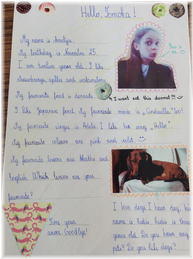 Hello, Tomoka!
My name is
My birthday is November 25.
I am twelve years old. I like
strawberries, apples and watermelons.
My favourite food is donuts.
I want eat this donut!
I like Japanese food. My favourite movie is „Cinderella".
My favourite singer is Adele. I like her song „Hello".
My favourite colours are pink and
My favourite lessons are Maths and
English. Which lessons are your
favourite?
Time your
name. Goodbye!
I love dogs. I have dog, his
name is
years old. Do you have any
pets? Do you like dogs?